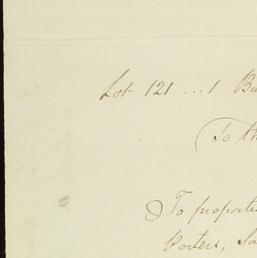 Lot 121 ... 1 Bu
(To th
To proporti
Porters, Sa